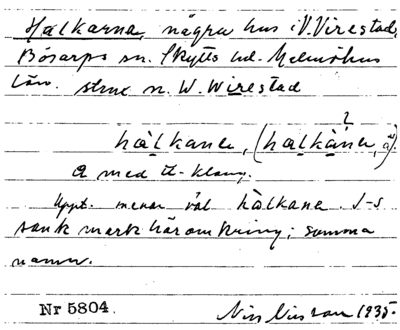 Hälkarna, några hus i V. Virestad,
Bösarps sn. Skytts hd. Malmöhus
län. strax n. W. Wirestad
hàlkana, (hàlkána, ä).
a med ä-klang.
Uppt. menar väl hàlkana. I-s
sank mark häromkring; samma
namn.
Nr 5804. Nils Nilsson 1935.